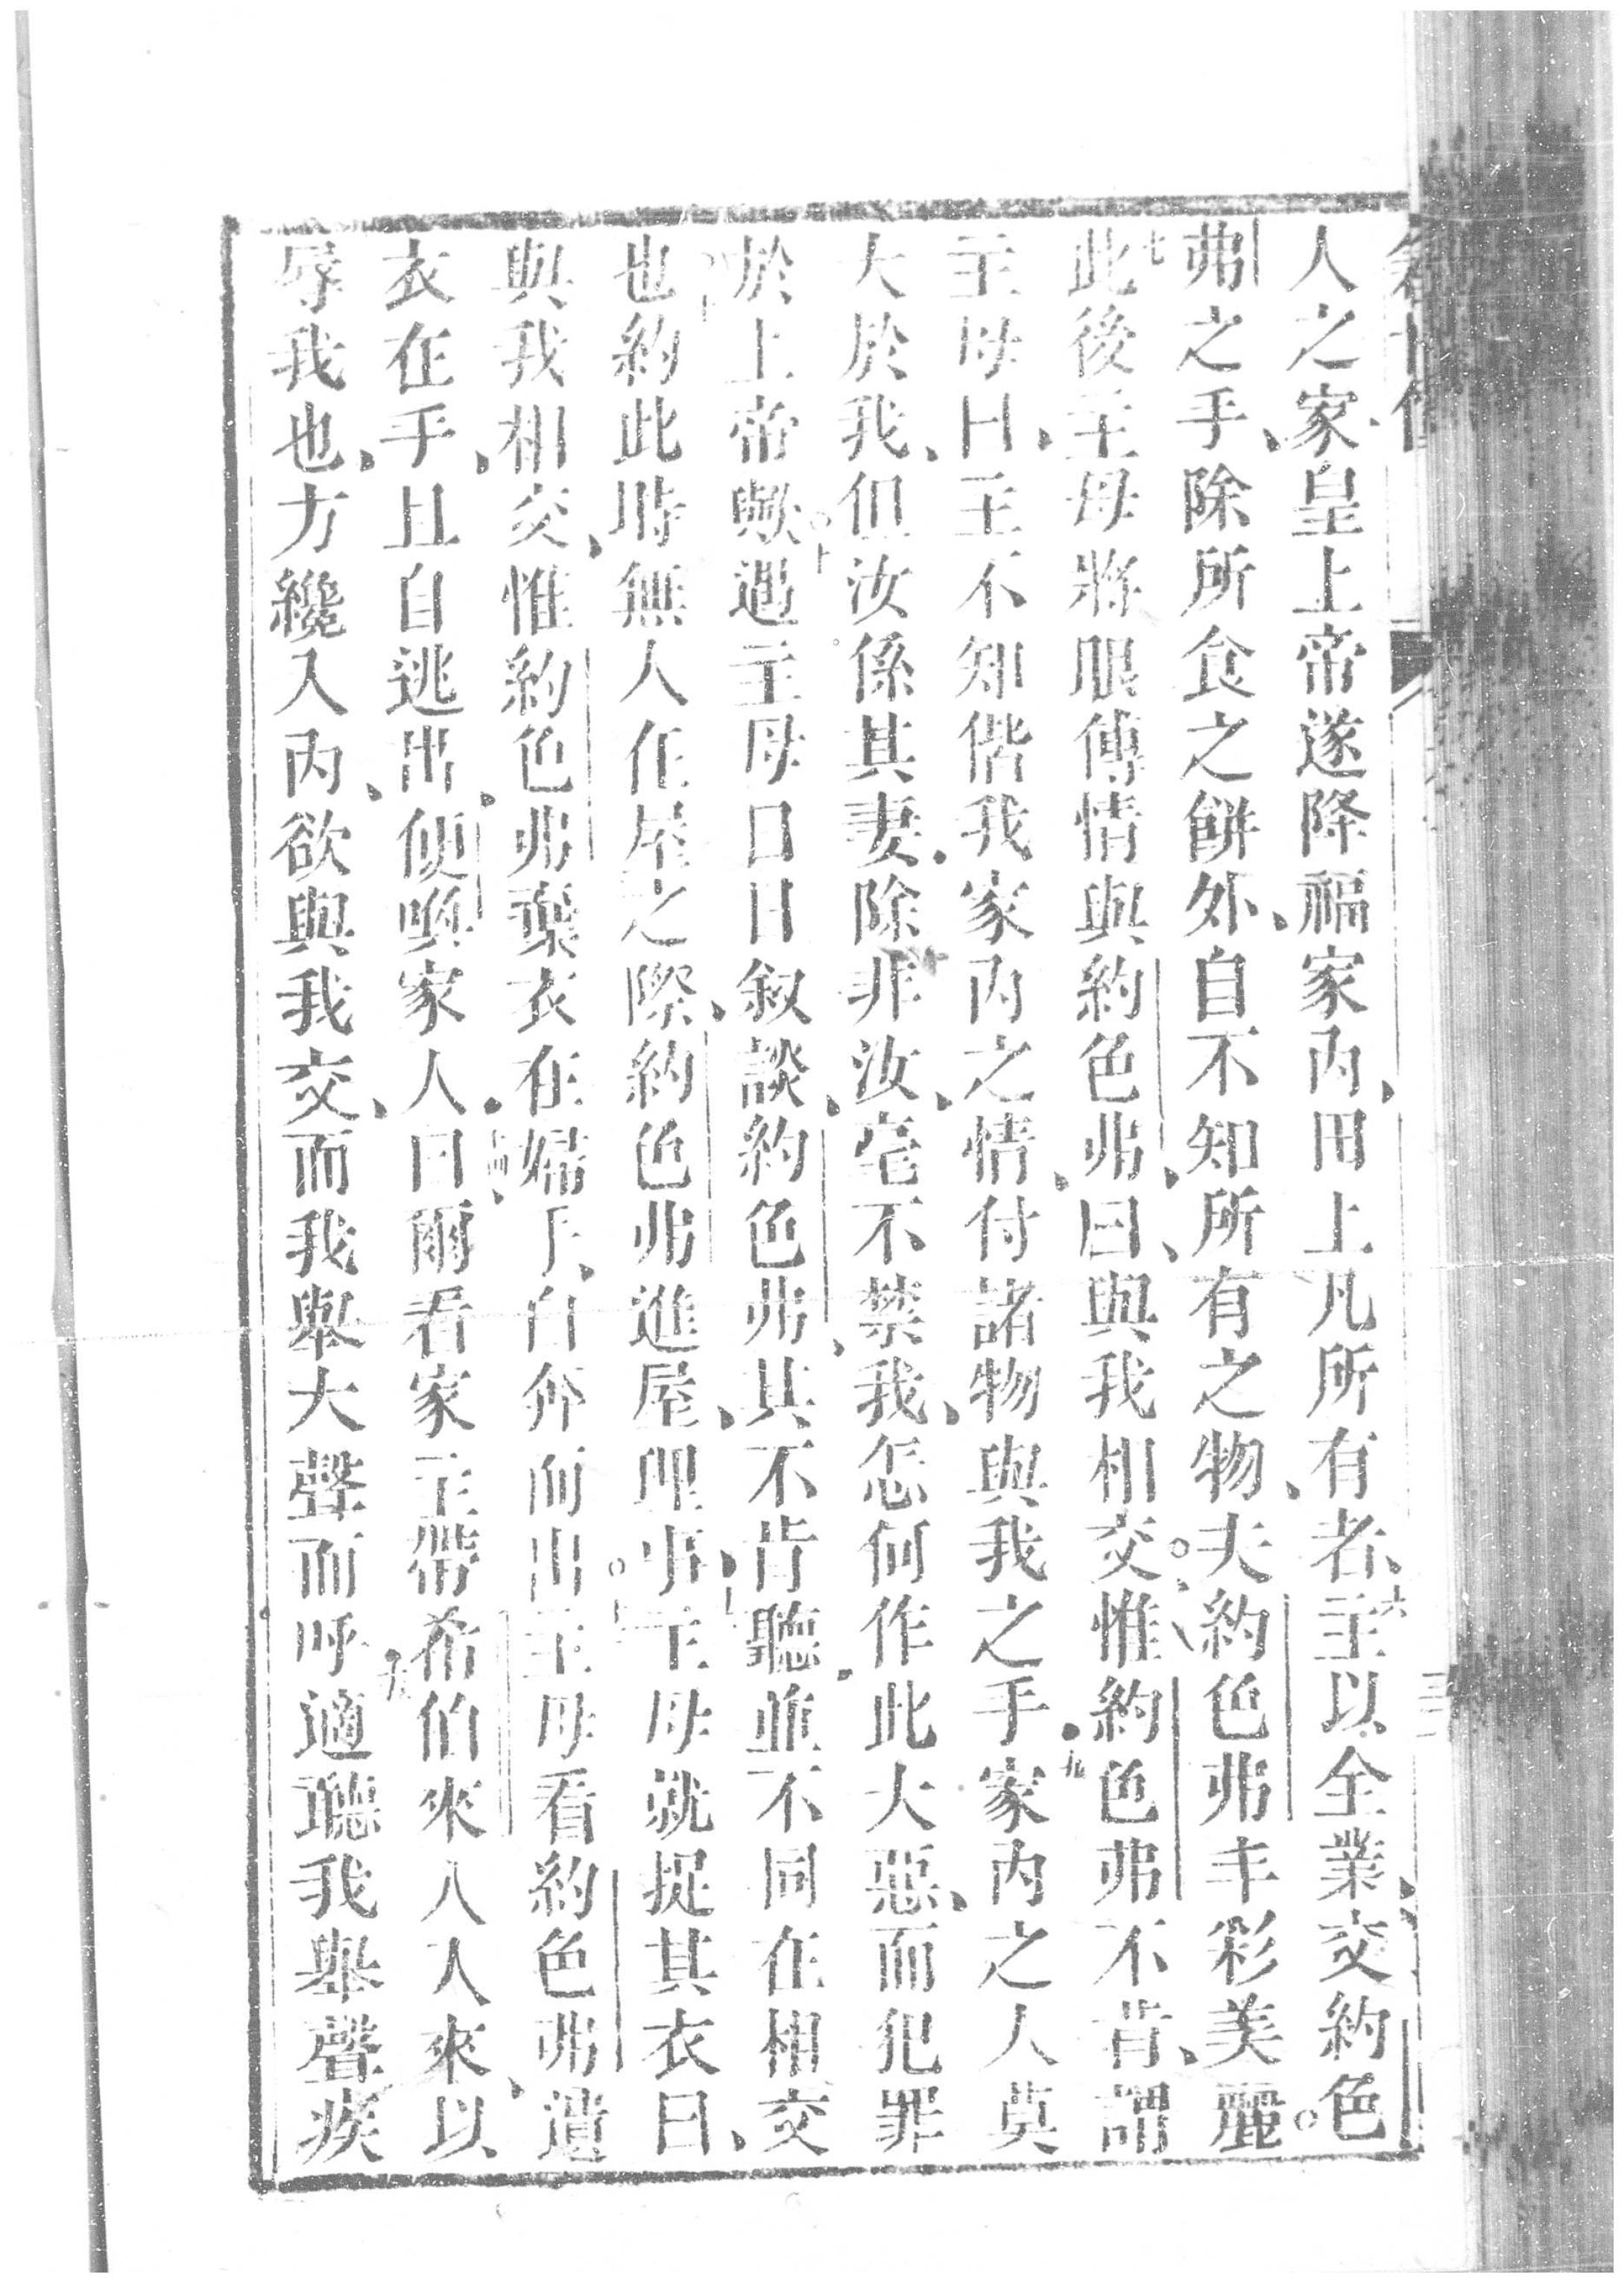 人之家、皇上帝遂降福家內、田上凡所有者、六主以全業、交約色
弗之手、除所食之餅外、自不知所有之物、夫約色弗丰彩美麗。
七此後主母將眼傅情與約色弗、曰、與我相交。惟約色弗不肯、謂
主母曰、主不知偕我家內之情、付諸物與我之手、九家內之人莫
大於我、但汝係其妻、除非汝、毫不禁我、怎何作此大惡、而犯罪
於上帝歟。十遇主母日日叙談、約色弗、其不肯聽、並不同在相交
也、約此時無人在屋之際、約色弗進屋、理事、主母就捉其衣曰、
與我相交、惟約色弗棄衣在婦手、自奔而出。主母看約色弗遺
衣在手、且自逃出、便喚家人、曰、爾看家主帶希伯來人人來、以
辱我也、方纔入內、欲與我交、而我舉大聲而呼、適聽我舉聲疾